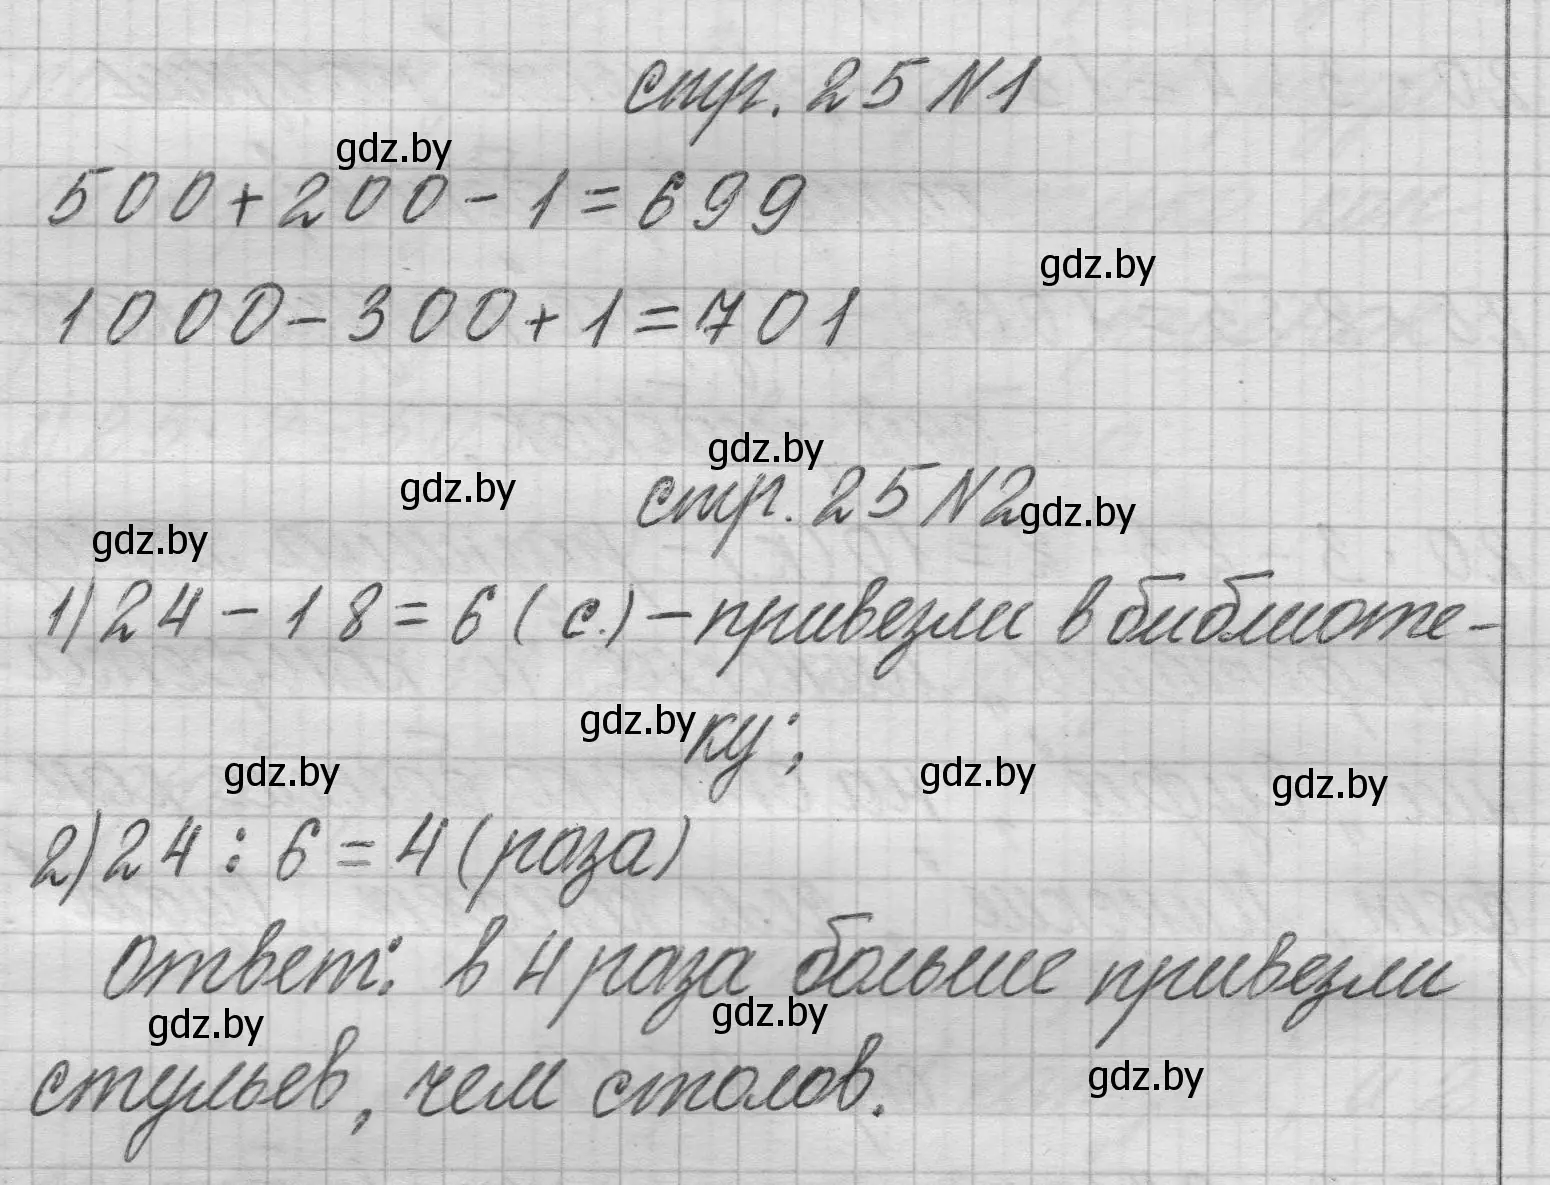 стр. 25 N1
gdz.by
500+200-1=699
gdz.by
1000-300+1=701
gdz.by
gdz.by
стр. 25 N2
gdz.by
gdz.by
1) 24-18=6(с.)-привезли в библиоте-
gdz.by
ку;
gdz.by
gdz.by
gdz.by
2) 24:6=4(раза)
ответ: в 4 раза больше привезли
gdz.by
gdz.by
стульев, чем столов.
gdz.by